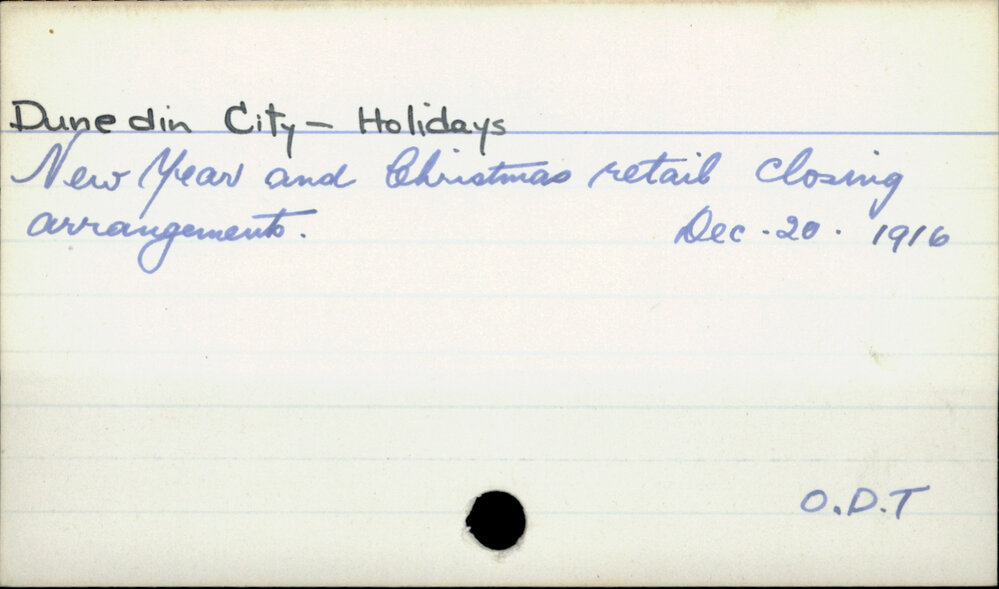 Dunedin City - Holidays
New Year and Christmas retail closing
arrangements. Dec. 20. 1916
O.D.T